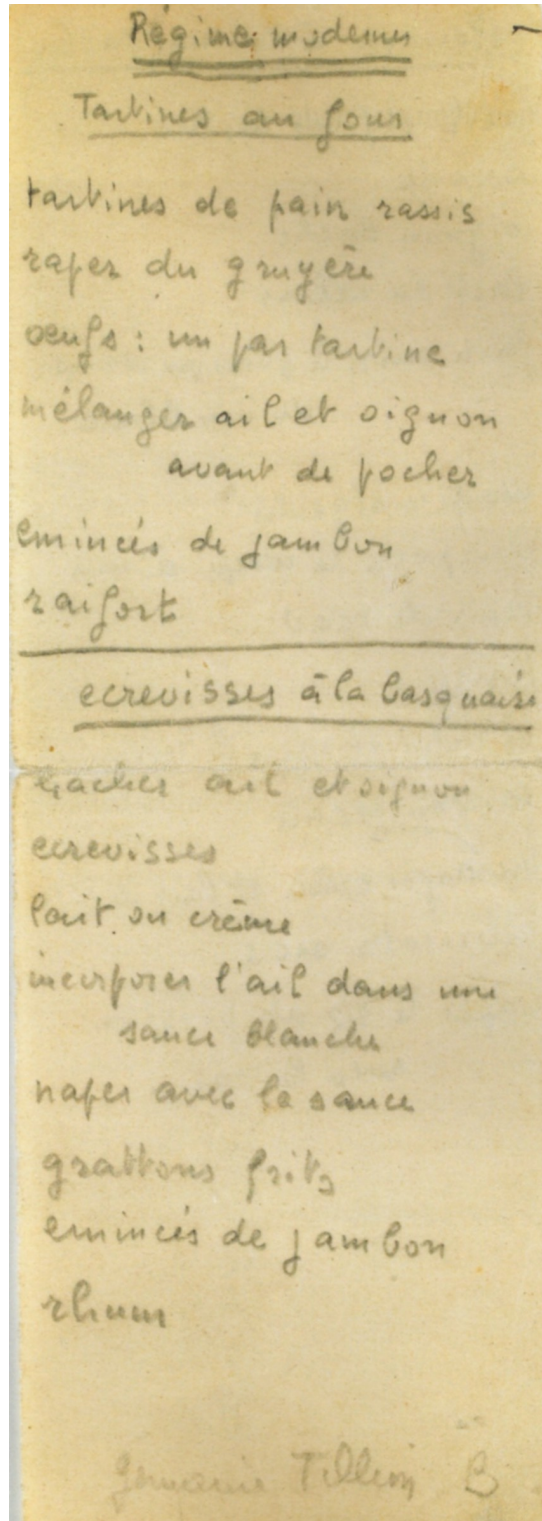 Régime moderne
Tartines au four
tartines de pain rassis
raper du gruyère
œufs : un par tartine
mélanger ail et oignon
avant de pocher
emincés de jambon
raifort
ecrevisses à la basquaise
hacher ail et oignon
ecrevisses
lait ou crème
incorporer l'ail dans une
sauce blanche
naper avec la sauce
grattons frits
emincés de jambon
rhum
Germaine Tillion B